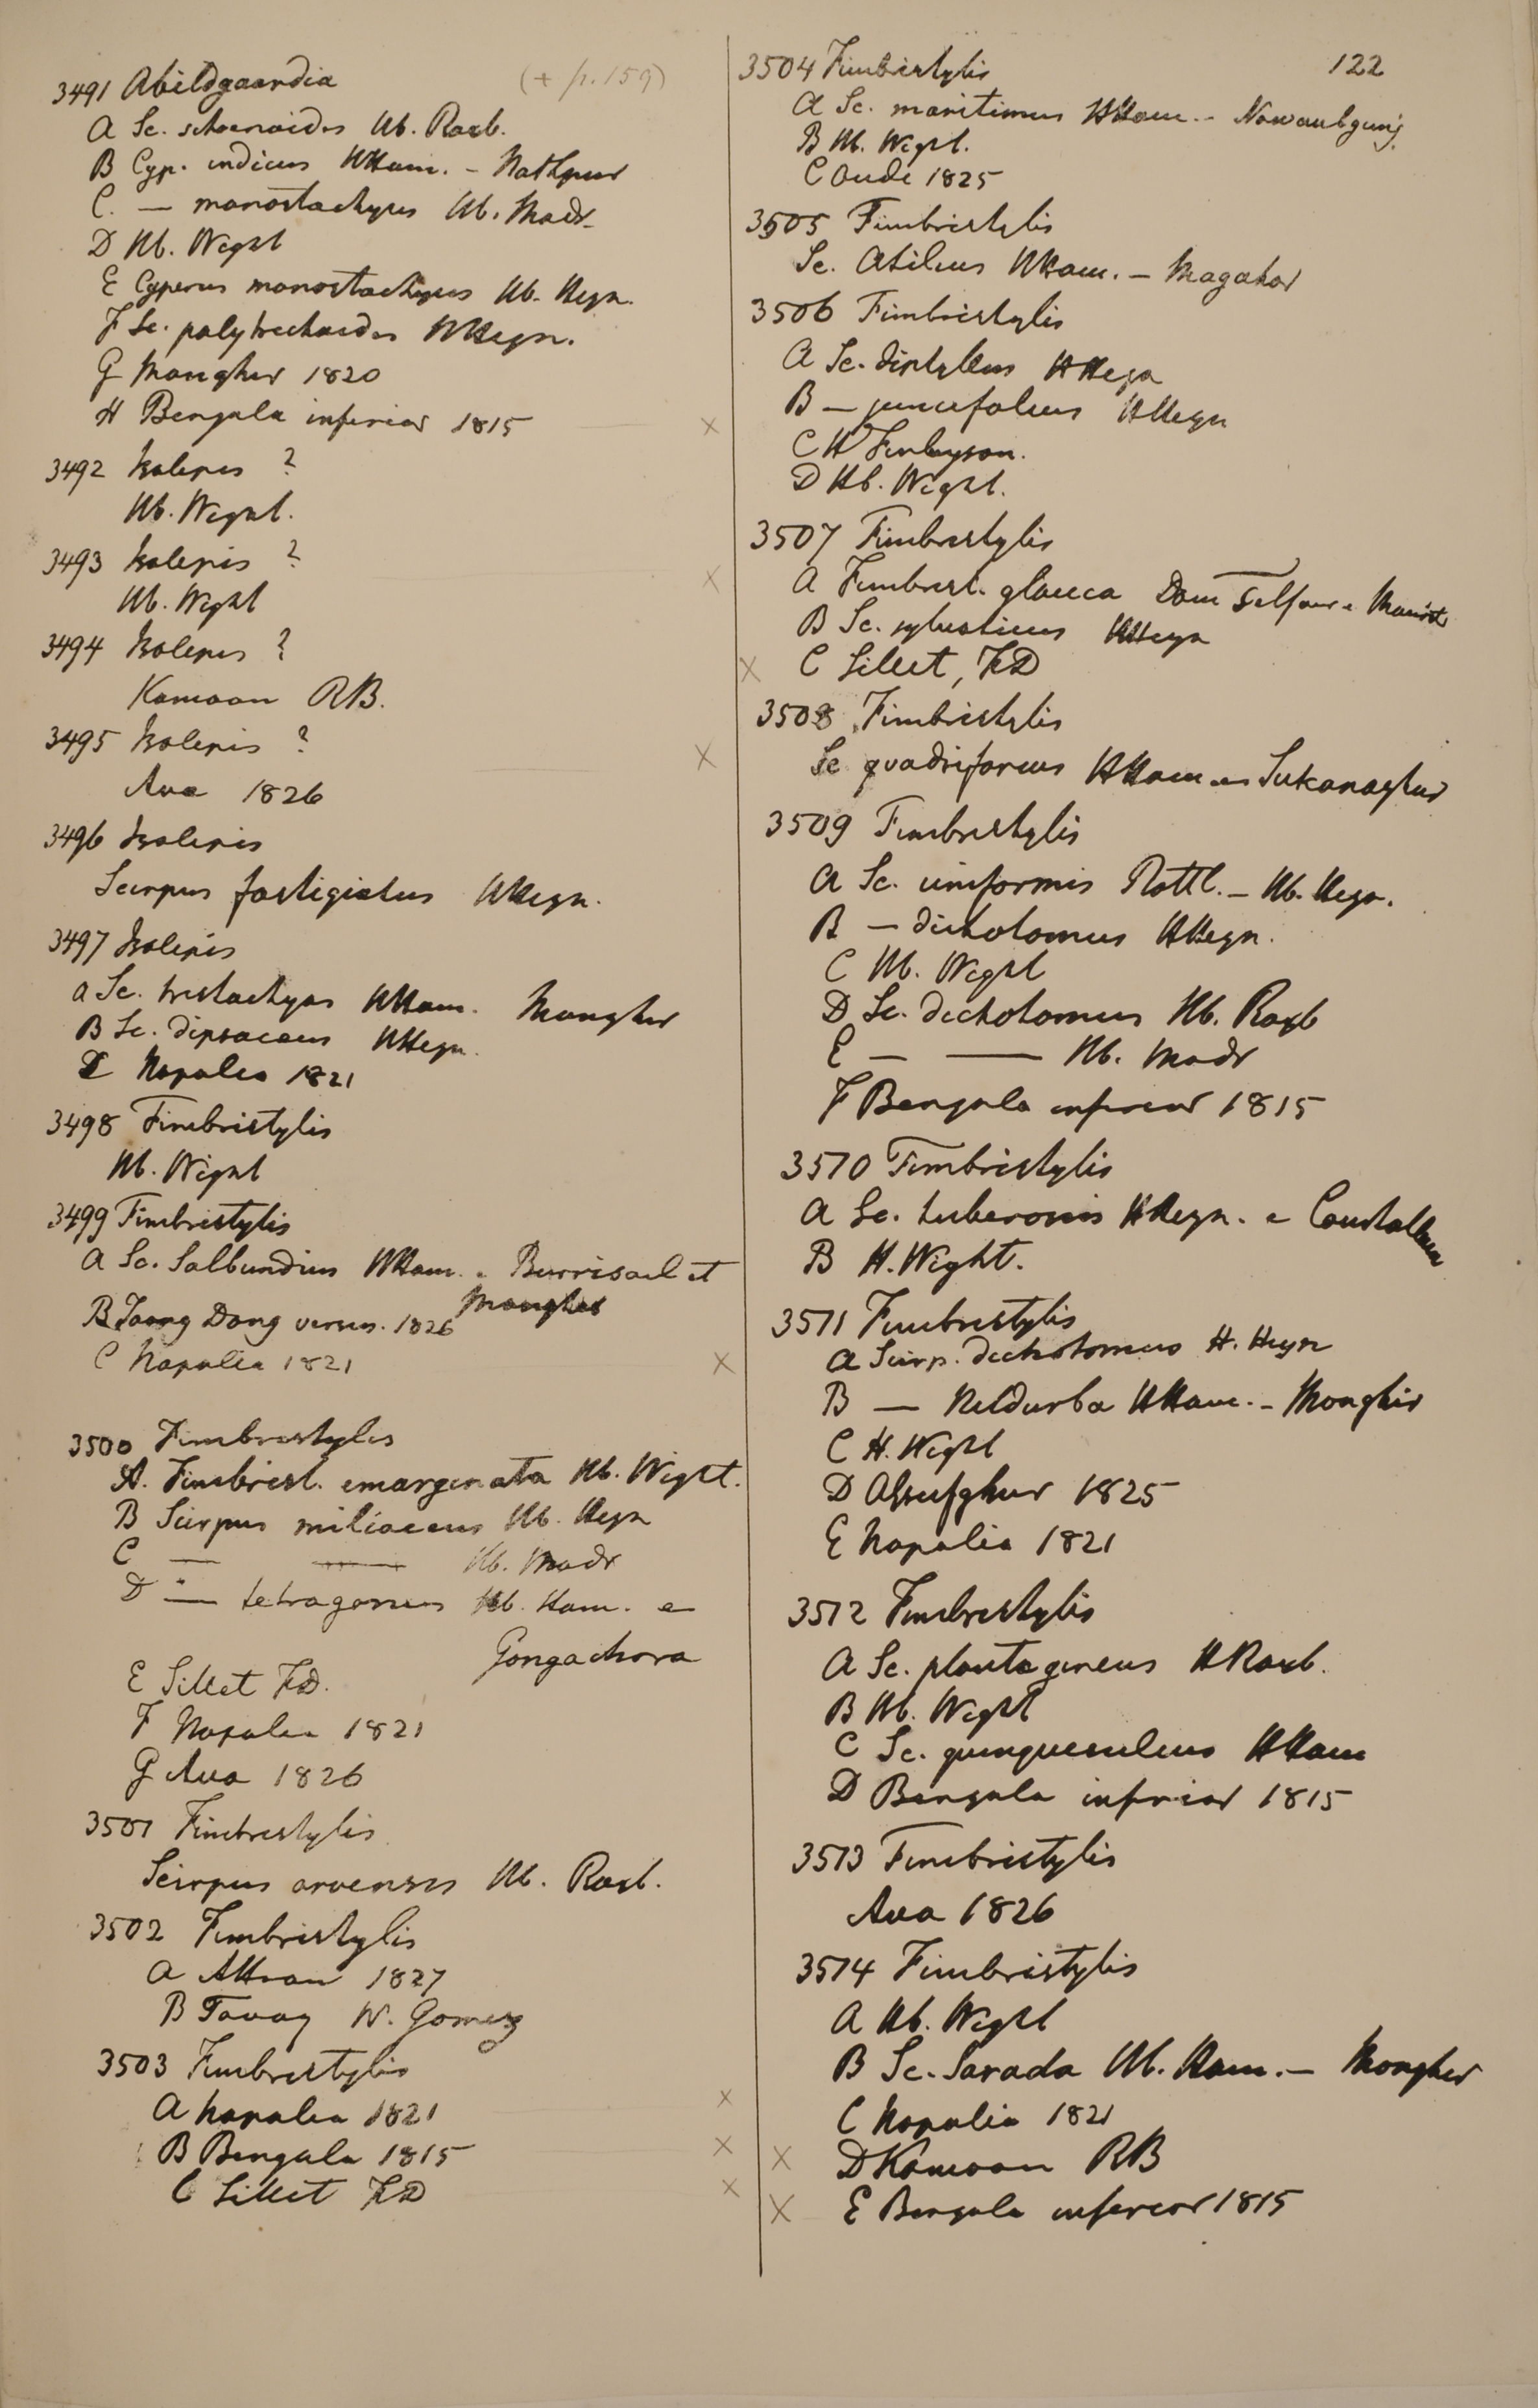 3491 Abildgaardia (+ p. 159)
A Sc. schoenoides Hb. Roxb.
B Cyp. indicus HHam. - Nathpur
C. — monostachyus Hb. Madr.
D Hb. Wight
E Cyperus monostachyus Hb. Heyn.
F Sc. polytrichoides HHeyn.
G Mongher 1820
H Bengala inferior 1815 x
3492 Isolepis ?
Hb. Wight.
3493 Isolepis ? x
Hb. Wight
3494 Isolepis ?
Kamaon RB.
3495 Isolepis ? x
Ava 1826
3496 Isolepis
Scirpus fastigiatus HHeyn.
3497 Isolepis
A Sc. tristachyos HHam. Mongher
B Sc. dipsaceus HHeyn.
Napalia 1821
3498 Fimbristylis
Hb. Wight
3499 Fimbristylis
A Sc. Salbundius HHam. Burrisael et
Mongher
B Taong Dong versus. 1826
C Napalia 1821 x
3500 Fimbristylis
A. Fimbrist. emarginata Hb. Wight.
B Scirpus miliaceus Hb. Heyn
C — — Hb. Madr
D — tetragonus Hb. Ham. e
Gongachora
E Sillet FD.
F Napalia 1821
G Ava 1826
3501 Fimbristylis
Scirpus arvensis Hb. Roxb.
3502 Fimbristylis
A Attran 1827
B Tavoy W. Gomez
3503 Fimbristylis
A Napalia 1821 x
B Bengala 1815 x
C Sillet FD x
122
3504 Fimbristylis
A Sc. maritimus HHam. - Nawaubgunj.
B Hb. Wight.
C Oude 1825
3505 Fimbristylis
Sc. HHam. —
3506 Fimbristylis
A Sc. diphyllus HHeyn
B — juncifolius HHeyn
C H Finlayson.
D Hb. Wight.
3507 Fimbristylis
A Fimbrist. glauca Dom Telfair e Maurit
B Sc. sylvaticus HHeyn
x C Sillet, FD
3508 Fimbristylis
Sc quadrifarius HHam Sukanaghur
3509 Fimbristylis
A Sc. uniformis Rottl. — Hb. Heyn.
B — dichotomus HHeyn.
C Hb. Wight
D Sc. dichotomus Hb. Roxb
E — — Hb. Madr
F Bengala inferior 1815
3510 Fimbristylis
A Sc. tuberosus HHeyn. e
B H. Wight.
3511 Fimbristylis
A Scirp. dichotomus H. Heyn
B — Neldurba HHam. - Monghir
C H. Wight
D 1825
E Napalia 1821
3512 Fimbristylis
A Sc. plantagineus H Roxb.
B Hb. Wight
C Sc. HHam
D Bengala inferior 1815
3513 Fimbristylis
Ava 1826
3514 Fimbristylis
A Hb. Wight
B Sc. Sarada Hb. Ham. — Mongher
C Napalia 1821
x D Kamaon RB
x E Bengala inferior 1815